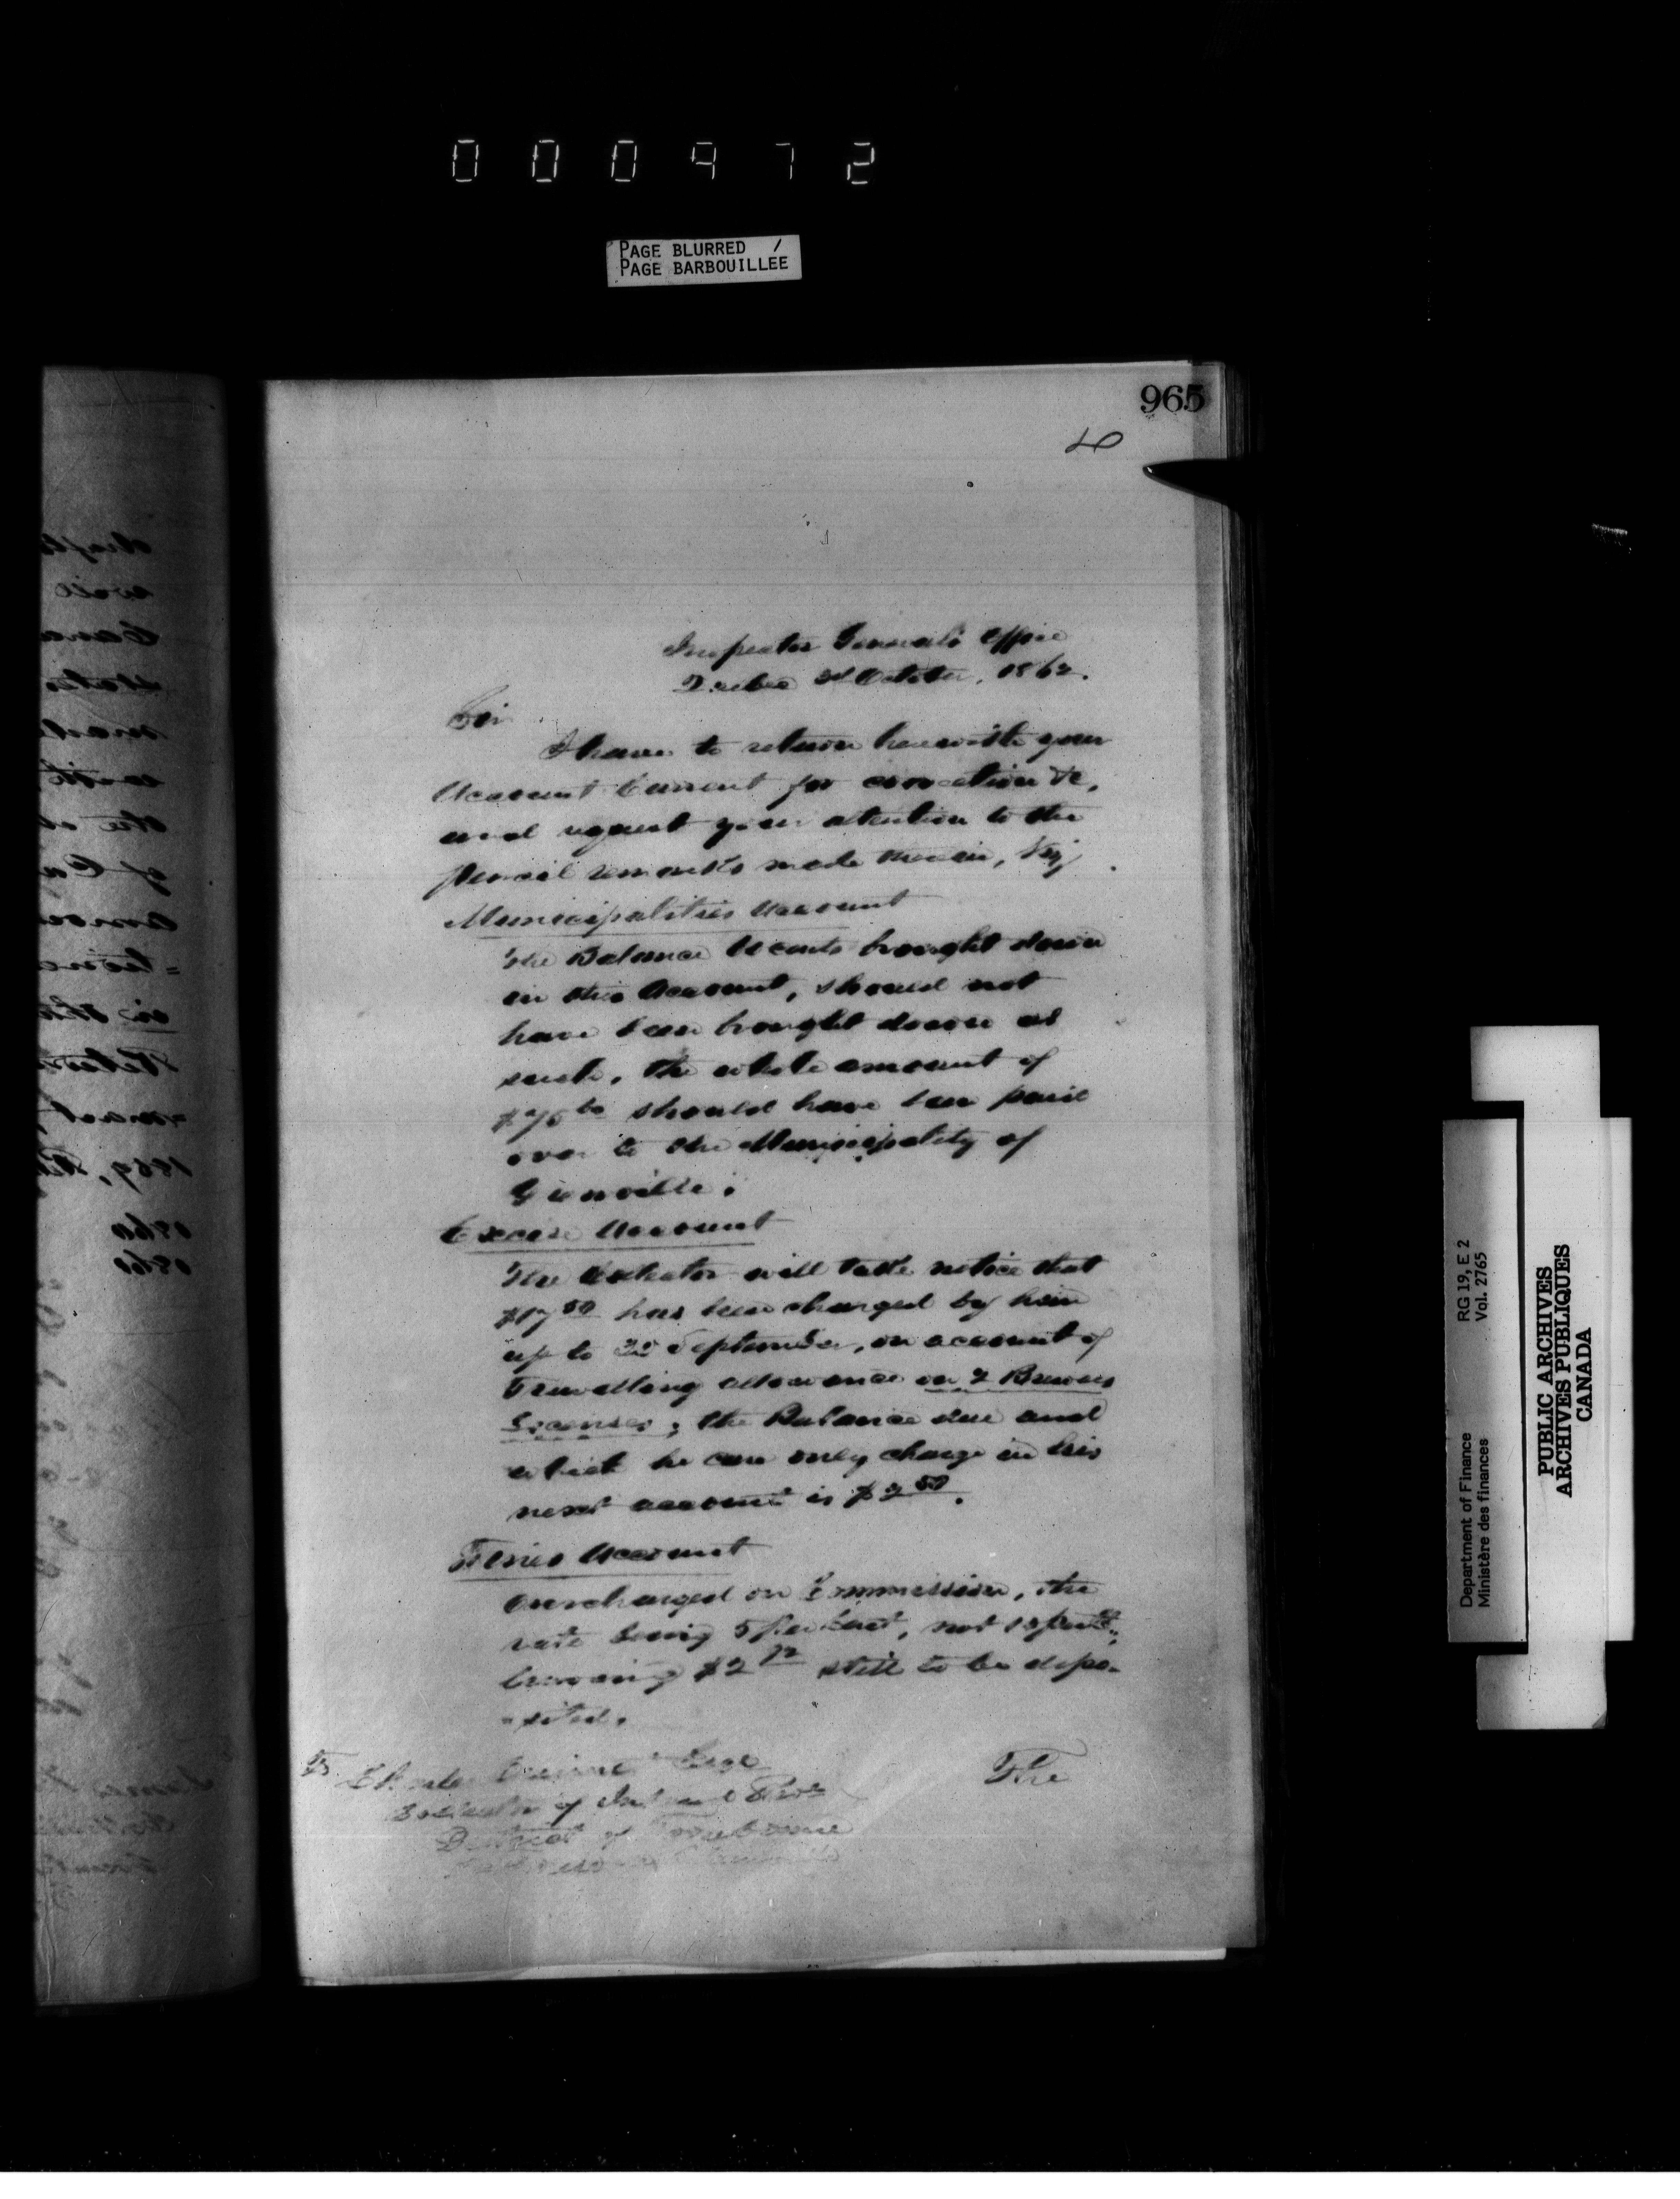 000972
PAGE BLURRED /
PAGE BARBOUILLEE
965
Inspector General's Office
Quebec 3d October, 1862.
Sir
I have to return herewith your
Account Current for correction &c,
and request your attention to the
pencil remarks made therein, Viz
Municipalities Account
The Balance brought down
in this Account, should not
have been brought down as
such, the whole amount of
should have been paid
over to the Municipality of
Grenville.
Excise Account
The Collector will take notice that
$17 50 has been charged by him
up to September, on account of
Travelling allowance on 2 Brewers
Licenses; the Balance due and
which he can only charge in his
next account is $2 50.
Fines Account
Overcharged on Commission, the
rate being 5 per Cent, not 10 per Ct,
leaving $2 still to be depo-
-sited.
The
Collector of Inland Rev
District of Terrebonne
Department of Finance RG 19, E 2
Ministère des finances Vol. 2765
PUBLIC ARCHIVES
ARCHIVES PUBLIQUES
CANADA